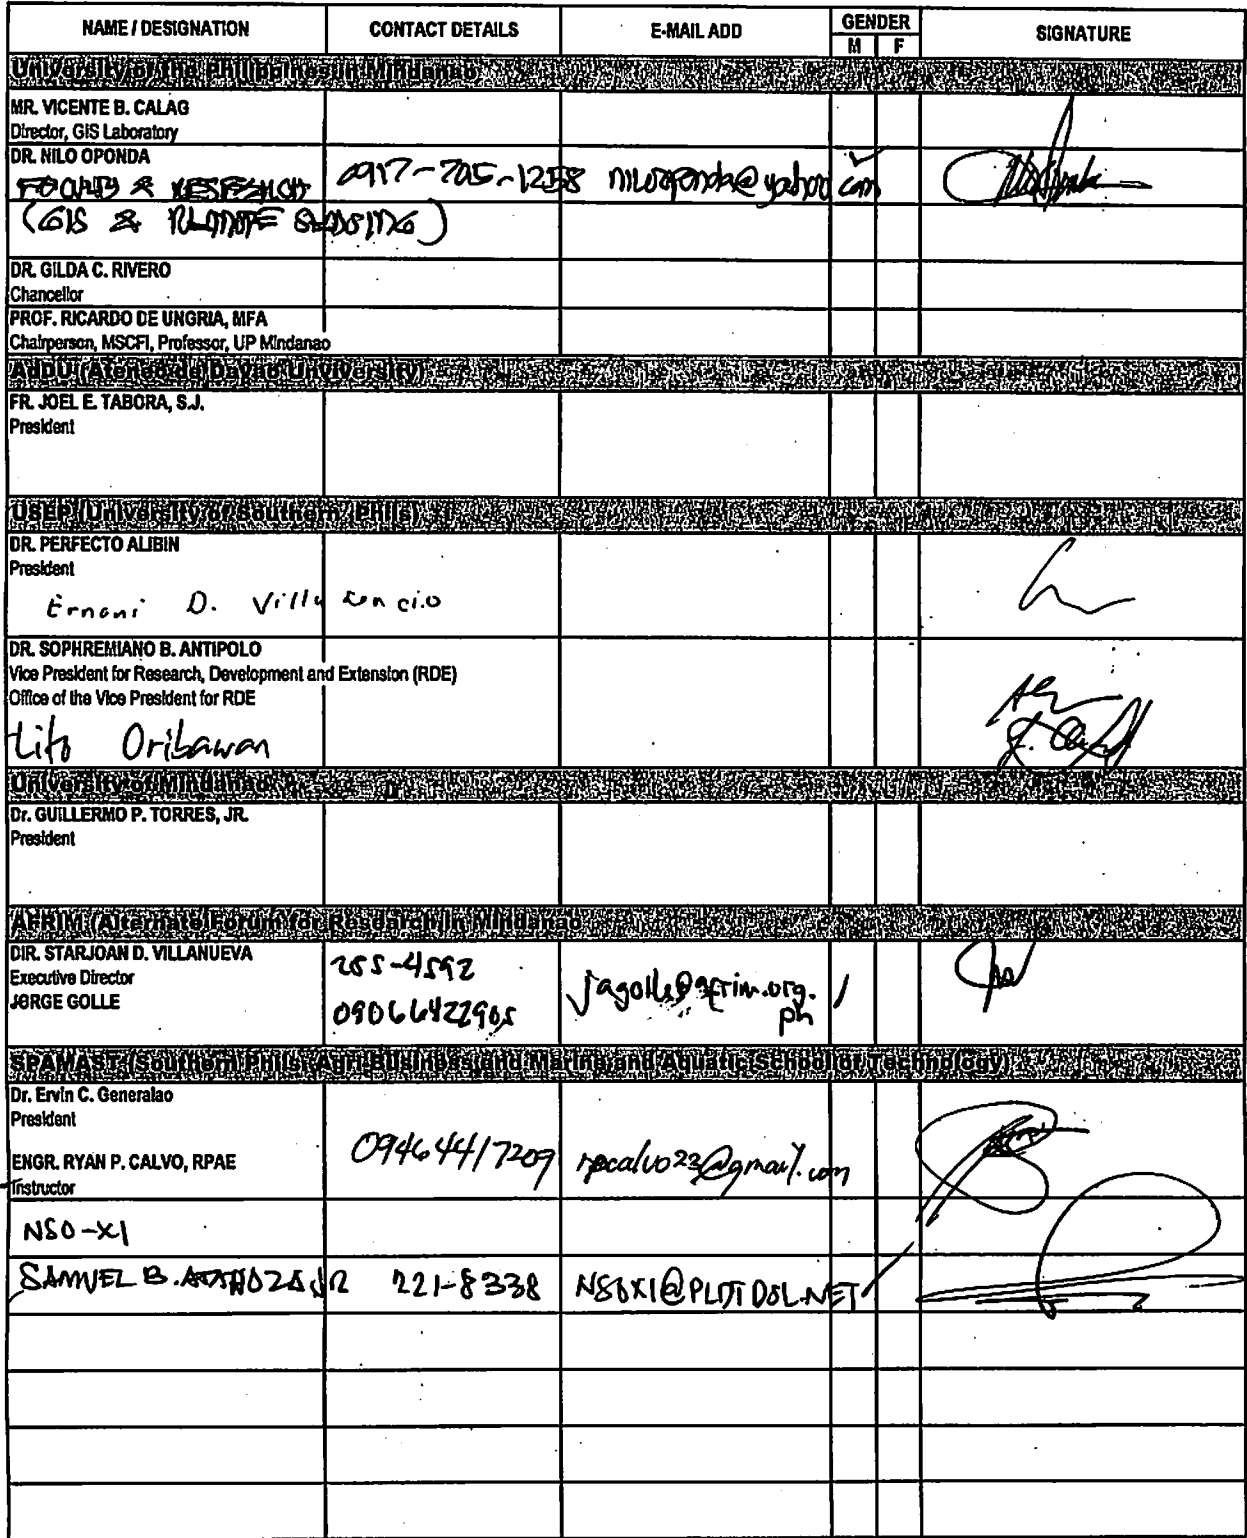 NAME / DESIGNATION CONTACT DETAILS E-MAIL ADD GENDER SIGNATURE
M F
University of the Philippines in Mindanao
MR. VICENTE B. CALAG
Director, GIS Laboratory
DR. NILO OPONDA
0917-705-1258 nilooponda@yahoo.com
FACULTY & RESEARCH
(GIS & REMOTE SENSING)
DR. GILDA C. RIVERO
Chancellor
PROF. RICARDO DE UNGRIA, MFA
Chairperson, MSCFI, Professor, UP Mindanao
AdDU (Ateneo de Davao Unviversity)
FR. JOEL E. TABORA, S.J.
President
USEP (University of Southern (Phils)
DR. PERFECTO ALIBIN
President
Ernani D. Villavencio
DR. SOPHREMIANO B. ANTIPOLO
Vice President for Research, Development and Extension (RDE)
Office of the Vice President for RDE
Lito Oribawan
University of Mindanao
Dr. GUILLERMO P. TORRES, JR.
President
AFRIM (Alternate Forum for Research in Mindanao
DIR. STARJOAN D. VILLANUEVA
Executive Director
JORGE GOLLE
285-4592
09066422905
jagolle@afrim.org.
ph
SPAMAST (Southern Phils. Agri-Business and Marine and Aquatic School of Technology)
Dr. Ervin C. Generalao
President
ENGR. RYAN P. CALVO, RPAE
Instructor
09464417209 rpcalvo23@gmail.com
NSO-XI
SAMUEL B. JR 221-8338 NSOXI@PLDTDSL.NET